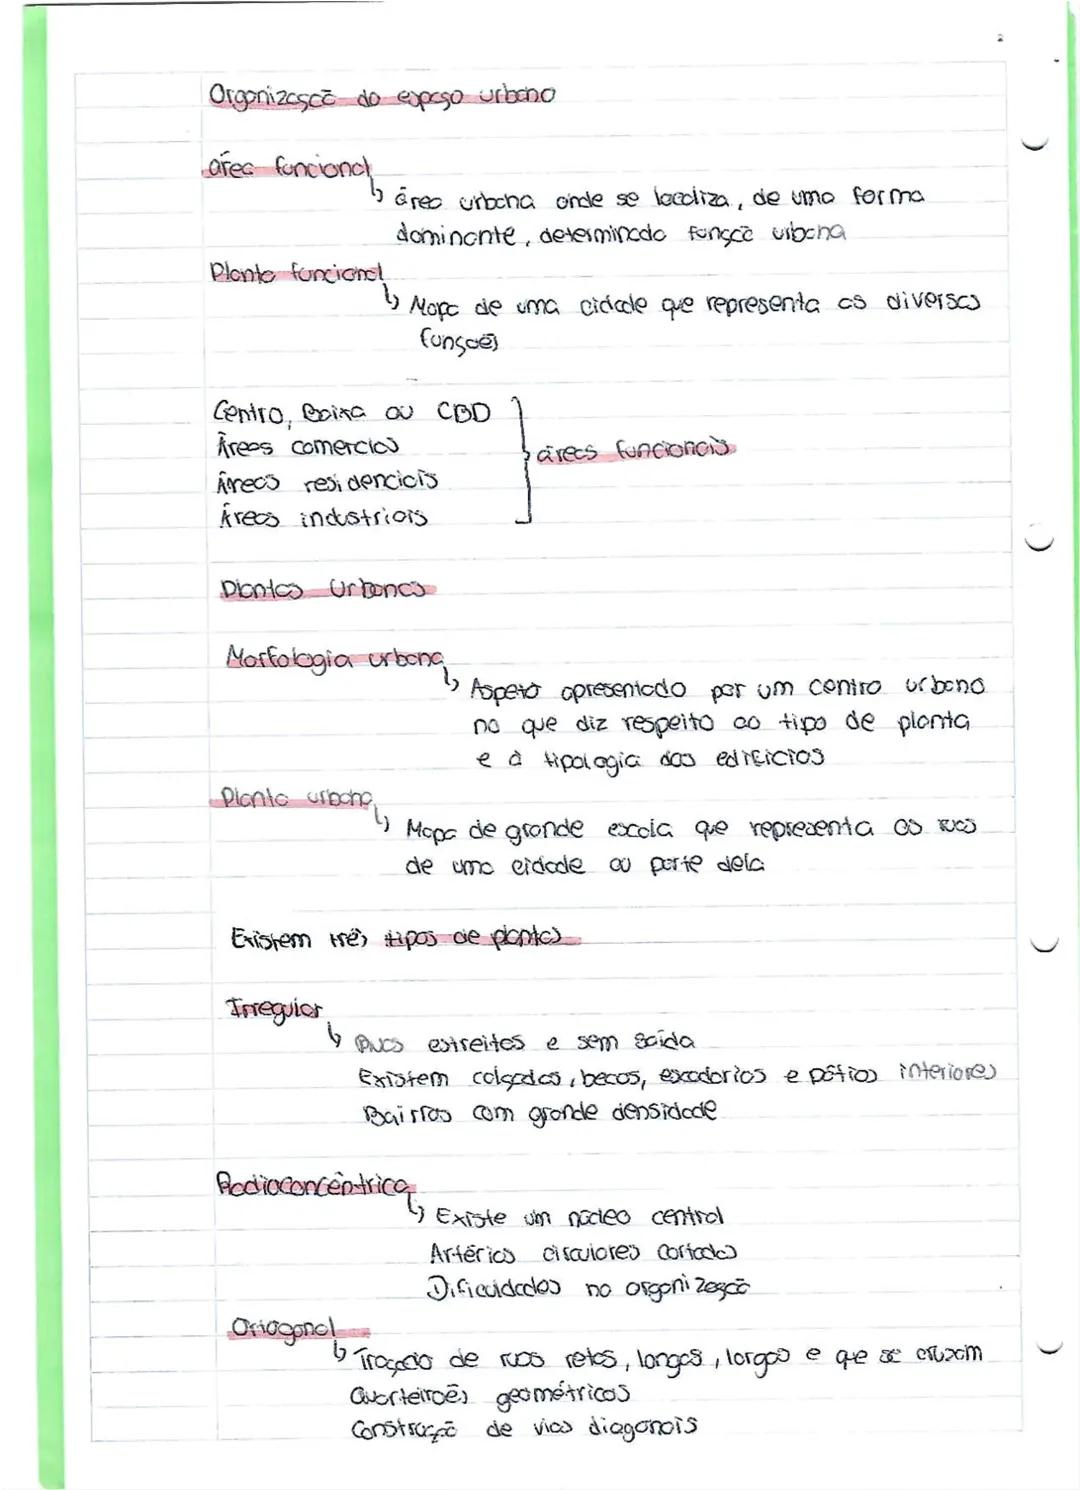 Organização do espaço urbano
área funcional
↳ área urbana onde se localiza, de uma forma
dominante, determinado função urbana
Planta funcional
↳ Mapa de uma cidade que representa as diversas
funções
Centro, Baixa ou CBD
Áreas comercias
áreas funcionais
Áreas residenciais
Áreas industriais
Plantas Urbanas
Morfologia urbana
↳ Aspeto apresentado por um centro urbano
no que diz respeito ao tipo de planta
e à tipologia dos edifícios
Planta urbana
↳ Mapa de grande escala que representa as ruas
de uma cidade ou parte dela
Existem três tipos de plantas
Irregular
↳ Ruas estreitas e sem saída
Existem calçadas, becos, escadarias e pátios interiores
Bairros com grande densidade
Radioconcêntrica
↳ Existe um núcleo central
Artérias circulares cortadas
Dificuldades na organização
Ortogonal
↳ Traçado de ruas retas, longas, largas e que se cruzam
Quarteirões geométricos
Construção de vias diagonais